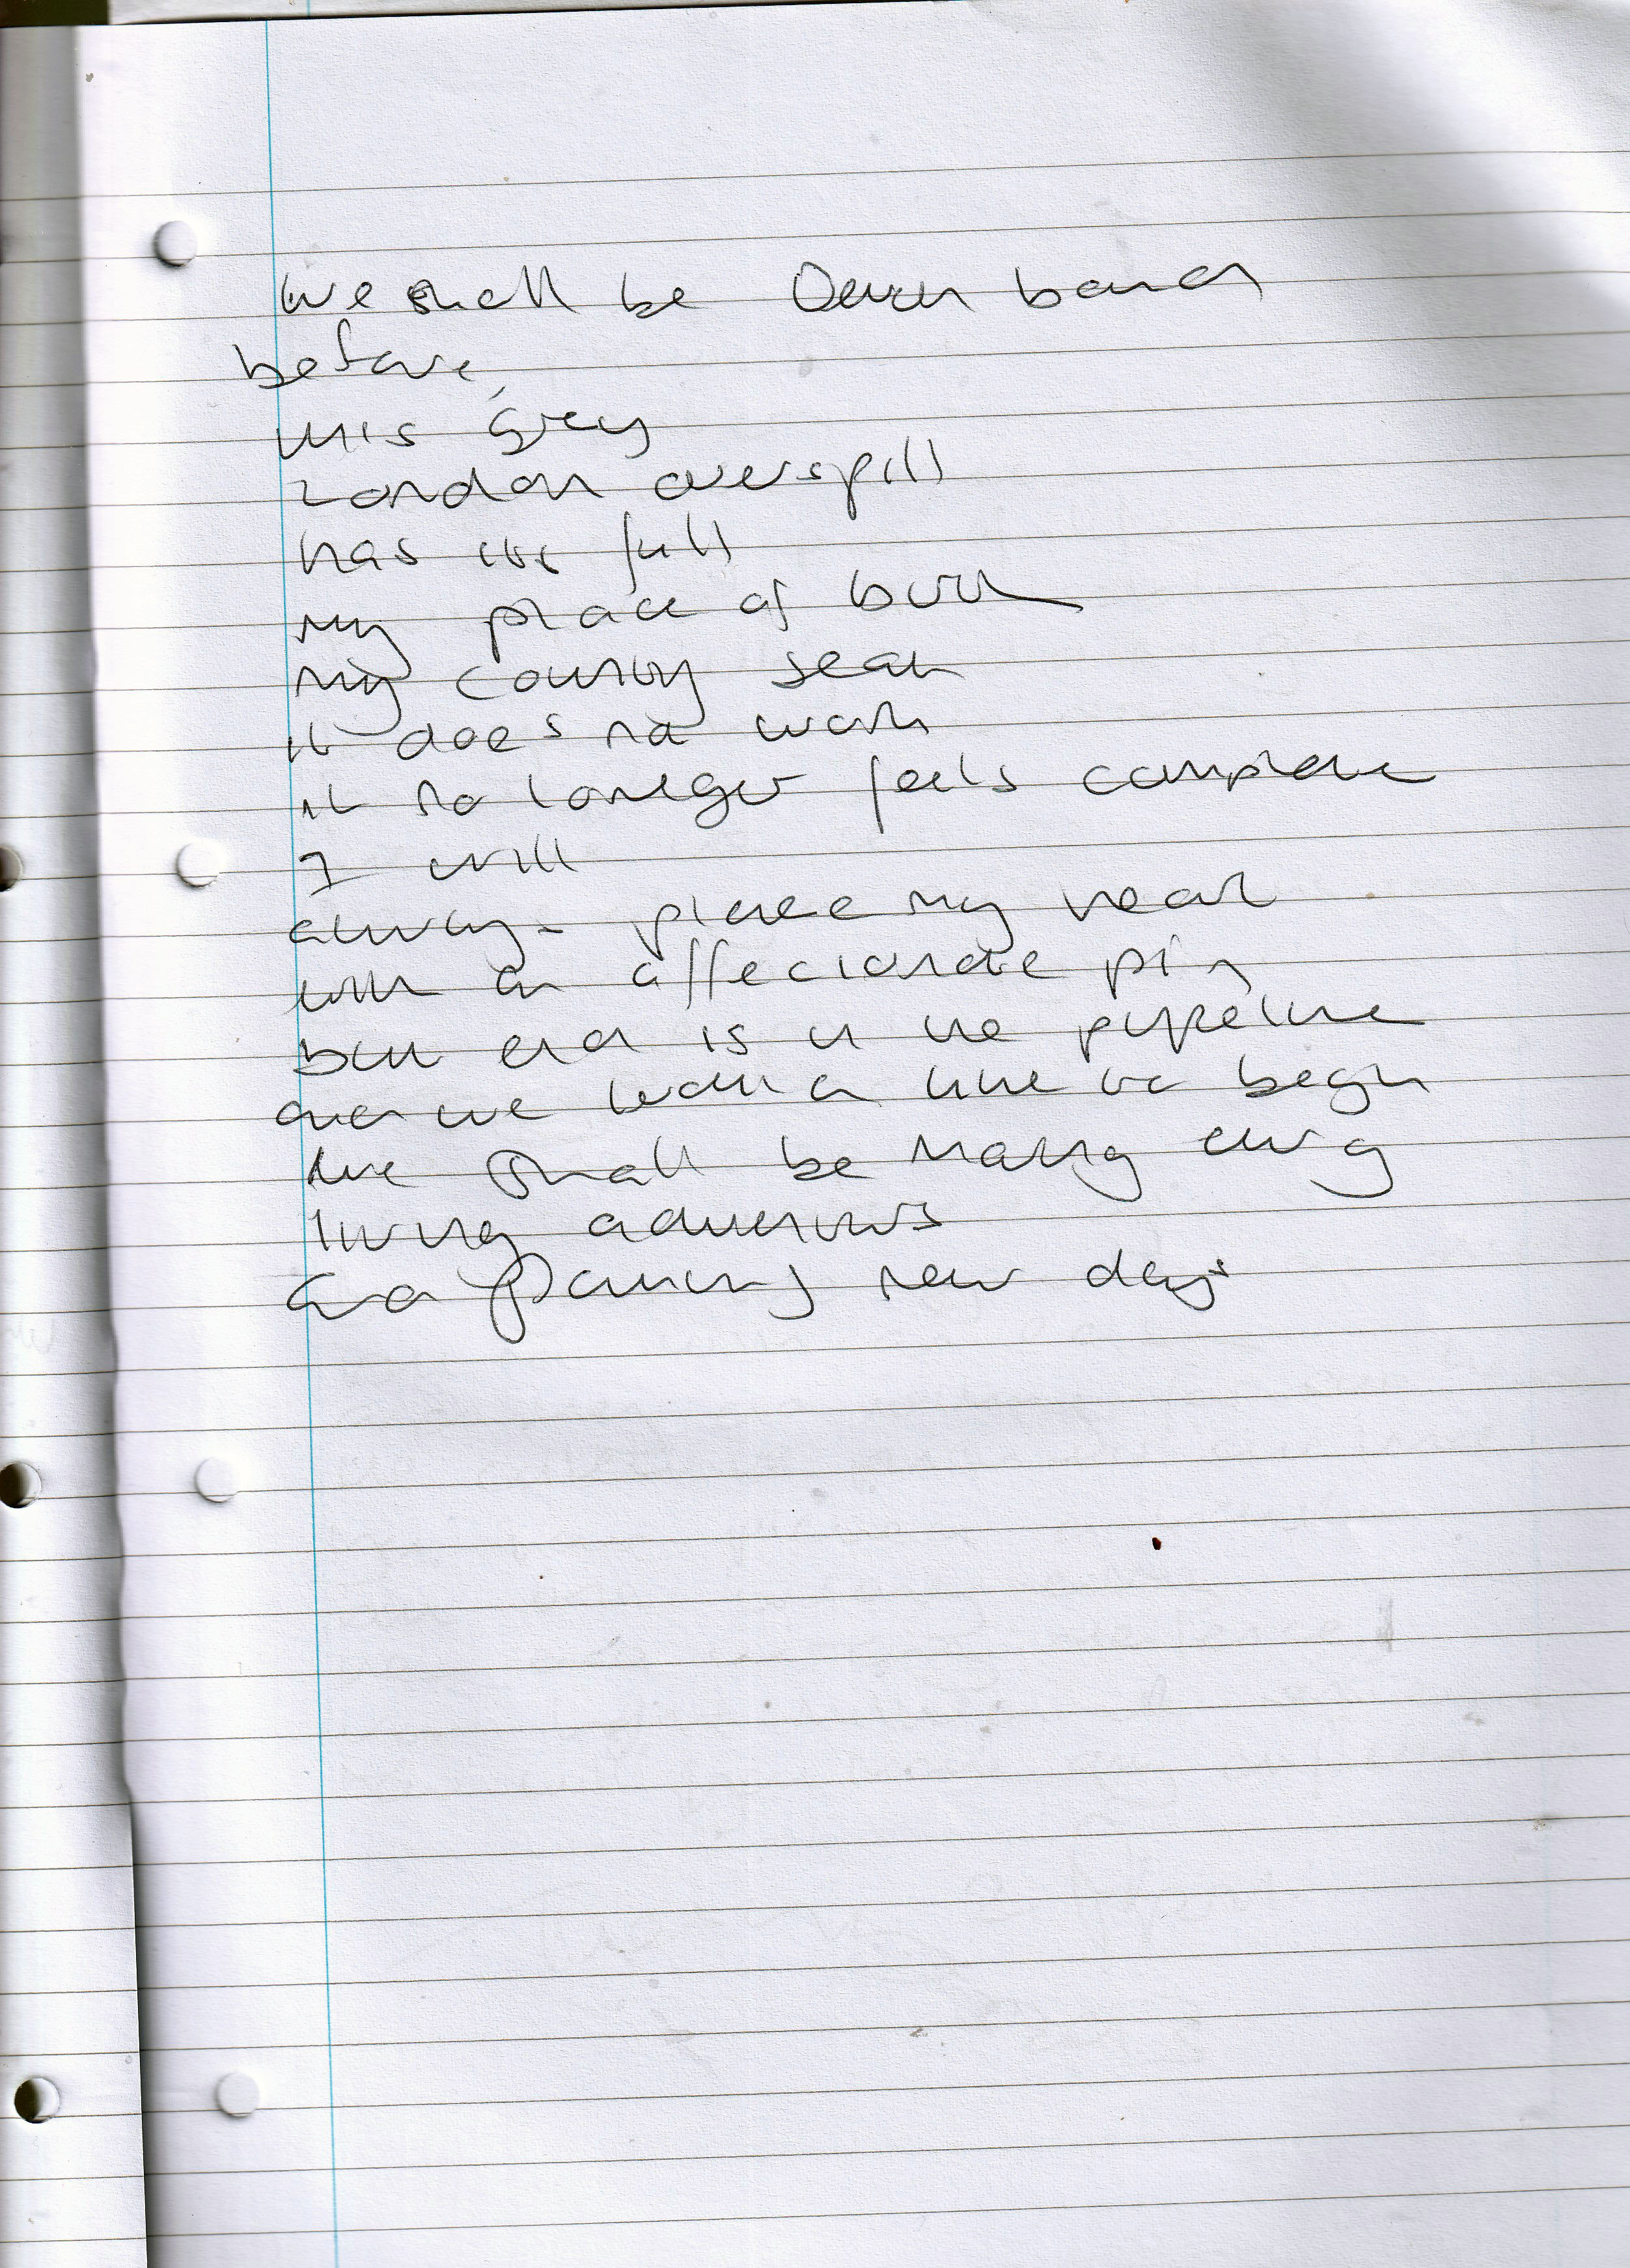 We shall be Devon bound
before
this grey
London overspill
has its full
my place of birth
my country seat
it does not work
it no longer feels complete
I will
always pierce my heart
with an affectionate pin
but end is in the pipeline
and we want a time to begin
We shall be
living adventures
and planning new days